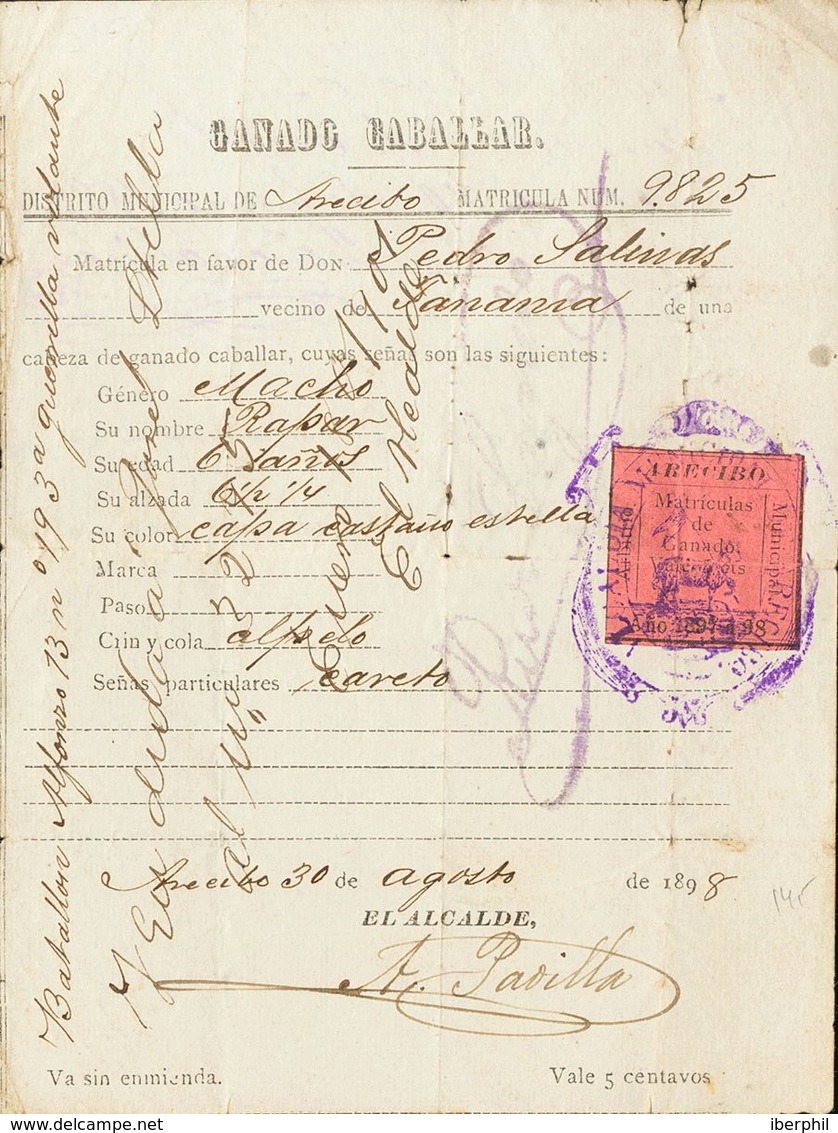 GANADO CABALLAR.
DISTRITO MUNICIPAL DE Arecibo MATRICULA NUM. 9.825
Matrícula en favor de DON Pedro Salinas
vecino de Tanama de una
cabeza de ganado caballar, cuyas señas son las siguientes:
Género Macho
Su nombre Rapar
Su edad 6 años
Su alzada 6 1/2 1/4
Su color capa castaño estrella
Marca
Paso
Crin y cola
Señas particulares Careto
Arecibo 30 de agosto de 1898
EL ALCALDE,
A. Padilla
Va sin enmienda.
Vale 5 centavos
ARECIBO
Matrículas
de
Ganado.
Arbitrio
Municipal
Año 1897 a 98
Batallon Alfonzo 13 nº 193ª guerrilla volante
Vendida á José
al
Enero
El Alcalde
145
delcampe.net
iberphil